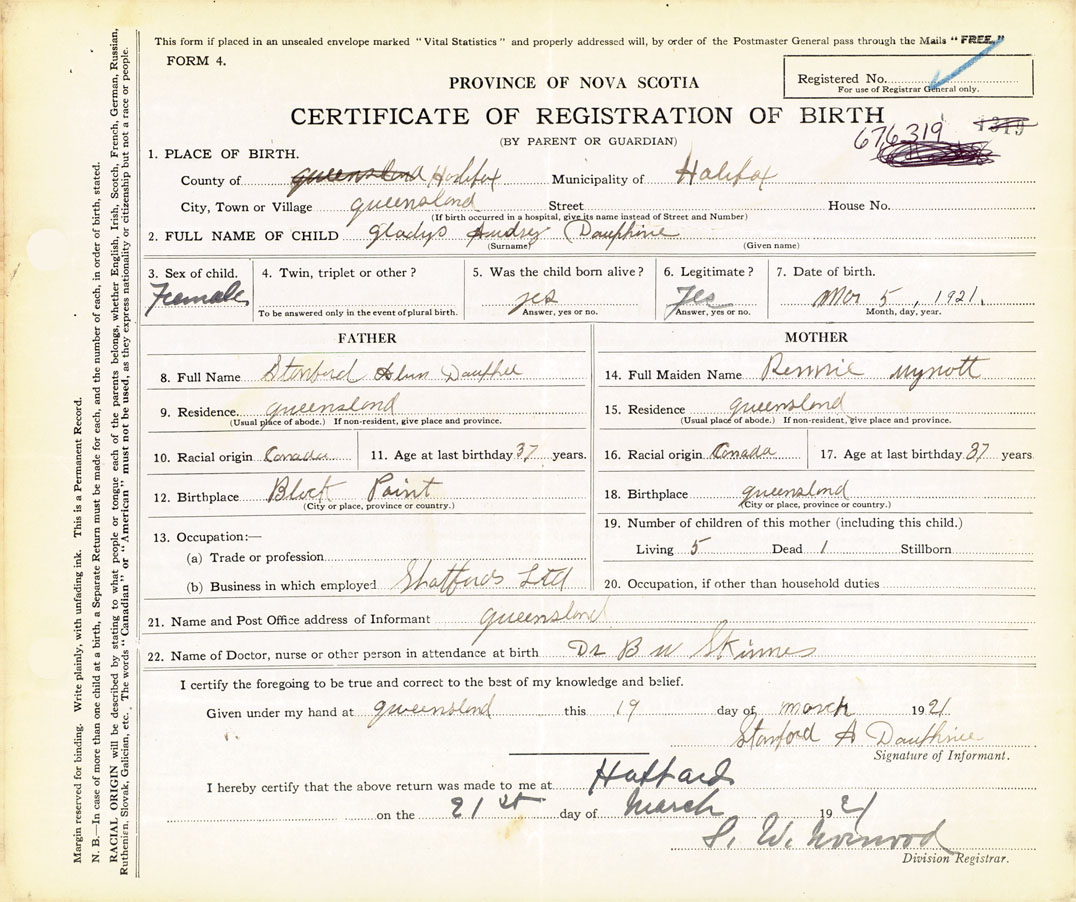 This form if placed in an unsealed envelope marked "Vital Statistics" and properly addressed will, by order of the Postmaster General pass through the Mails "FREE."
FORM 4.
PROVINCE OF NOVA SCOTIA
Registered No.
For use of Registrar General only.
CERTIFICATE OF REGISTRATION OF BIRTH
(BY PARENT OR GUARDIAN)
676319
1. PLACE OF BIRTH.
County of Queensland Halifax Municipality of Halifax
City, Town or Village Queensland Street House No.
(If birth occurred in a hospital, give its name instead of Street and Number)
2. FULL NAME OF CHILD Gladys Audrey Dauphine
(Surname) (Given name)
3. Sex of child. 4. Twin, triplet or other? 5. Was the child born alive? 6. Legitimate? 7. Date of birth.
Female yes Yes Mar 5, 1921.
To be answered only in the event of plural birth. Answer, yes or no. Answer, yes or no. Month, day, year.
FATHER MOTHER
8. Full Name Stanford Dauphee 14. Full Maiden Name Rennie Mynott
9. Residence. Queensland 15. Residence Queensland
(Usual place of abode.) If non-resident, give place and province. (Usual place of abode.) If non-resident, give place and province.
10. Racial origin Canada 11. Age at last birthday 37 years. 16. Racial origin Canada 17. Age at last birthday 37 years
12. Birthplace Black Point 18. Birthplace Queensland
(City or place, province or country.) (City or place, province or country.)
13. Occupation:— 19. Number of children of this mother (including this child.)
(a) Trade or profession Living 5 Dead 1 Stillborn
(b) Business in which employed Shatfords Ltd 20. Occupation, if other than household duties
21. Name and Post Office address of Informant Queensland
22. Name of Doctor, nurse or other person in attendance at birth Dr B W Skinner
I certify the foregoing to be true and correct to the best of my knowledge and belief.
Given under my hand at Queensland this 19 day of March 1921
Stanford A Dauphinee
Signature of Informant.
I hereby certify that the above return was made to me at
on the 21st day of March 1921
S. W. Norwood
Division Registrar.
Margin reserved for binding. Write plainly, with unfading ink. This is a Permanent Record.
N. B.—In case of more than one child at a birth, a Separate Return must be made for each, and the number of each, in order of birth, stated.
RACIAL ORIGIN will be described by stating to what people or tongue each of the parents belongs, whether English, Irish, Scotch, French, German, Russian,
Ruthenian, Slovak, Galician, etc. The words "Canadian" or "American" must not be used, as they express nationality or citizenship but not a race or people.